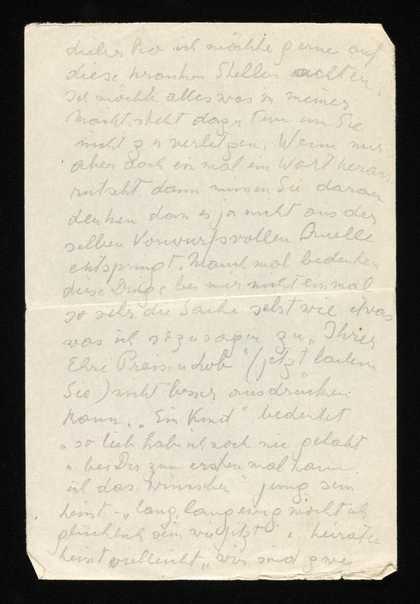 lieber Pio ich möchte gerne auf
diese kranken Stellen achten,
ich möchte alles was in meiner
Macht steht dazu tun um Sie
nicht zu verletzen. Wenn mir
aber doch einmal ein Wort heraus
rutscht dann müssen Sie daran
denken dass es ja nicht aus der
selben Vorwurfsvollen Quelle
entspringt. Manchmal bedeuten
diese Dinge bei mir nicht einmal
so sehr die Sache selbst wie etwas
was ich sozusagen zu „Ihrer
Ehre Preis u. Lob" (jetzt lachen
Sie) nicht besser ausdrücken
kann. „Ein Kind" bedeutet
„so lieb hab ich noch nie gehabt
„bei Dir zum ersten mal kann
ich das wünschen" jung sein
heisst „lang, lang ewig möcht ich
glücklich sein wie jetzt" „heiraten
heisst vielleicht „wir sind zwei